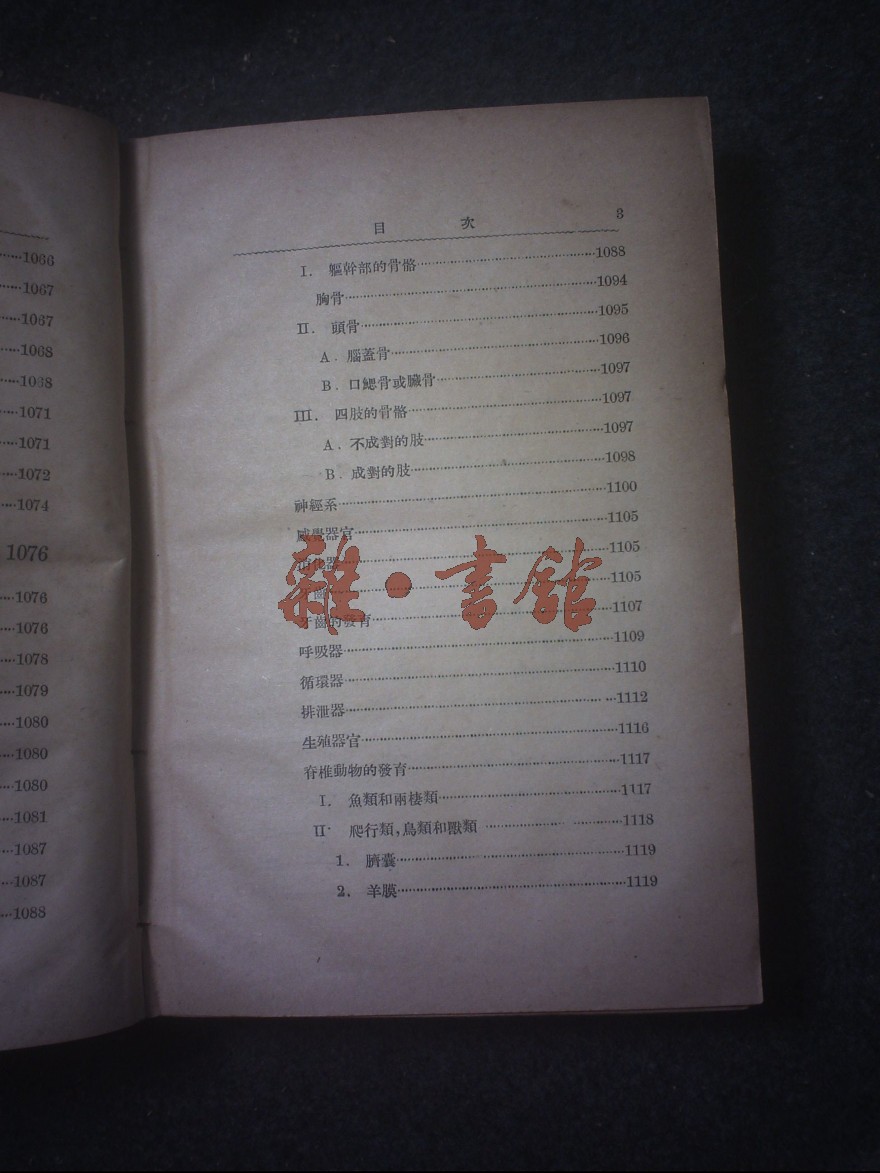 1066
1067
1067
1068
1068
1071
1071
1072
1074
1076
1076
1076
1078
1079
1080
1080
1080
1081
1087
1087
1088
目 次 3
I. 軀幹部的骨骼 1088
胸骨 1094
II. 頭骨 1095
A. 腦蓋骨 1096
B. 口鰓骨或臟骨 1097
III. 四肢的骨骼 1097
A. 不成對的肢 1097
B. 成對的肢 1098
神經系 1100
感覺器官 1105
消化器 1105
牙齒 1105
牙齒的發育 1107
呼吸器 1109
循環器 1110
排泄器 1112
生殖器官 1116
脊椎動物的發育 1117
I. 魚類和兩棲類 1117
II· 爬行類,鳥類和獸類 1118
1. 臍囊 1119
2. 羊膜 1119
雜·書館